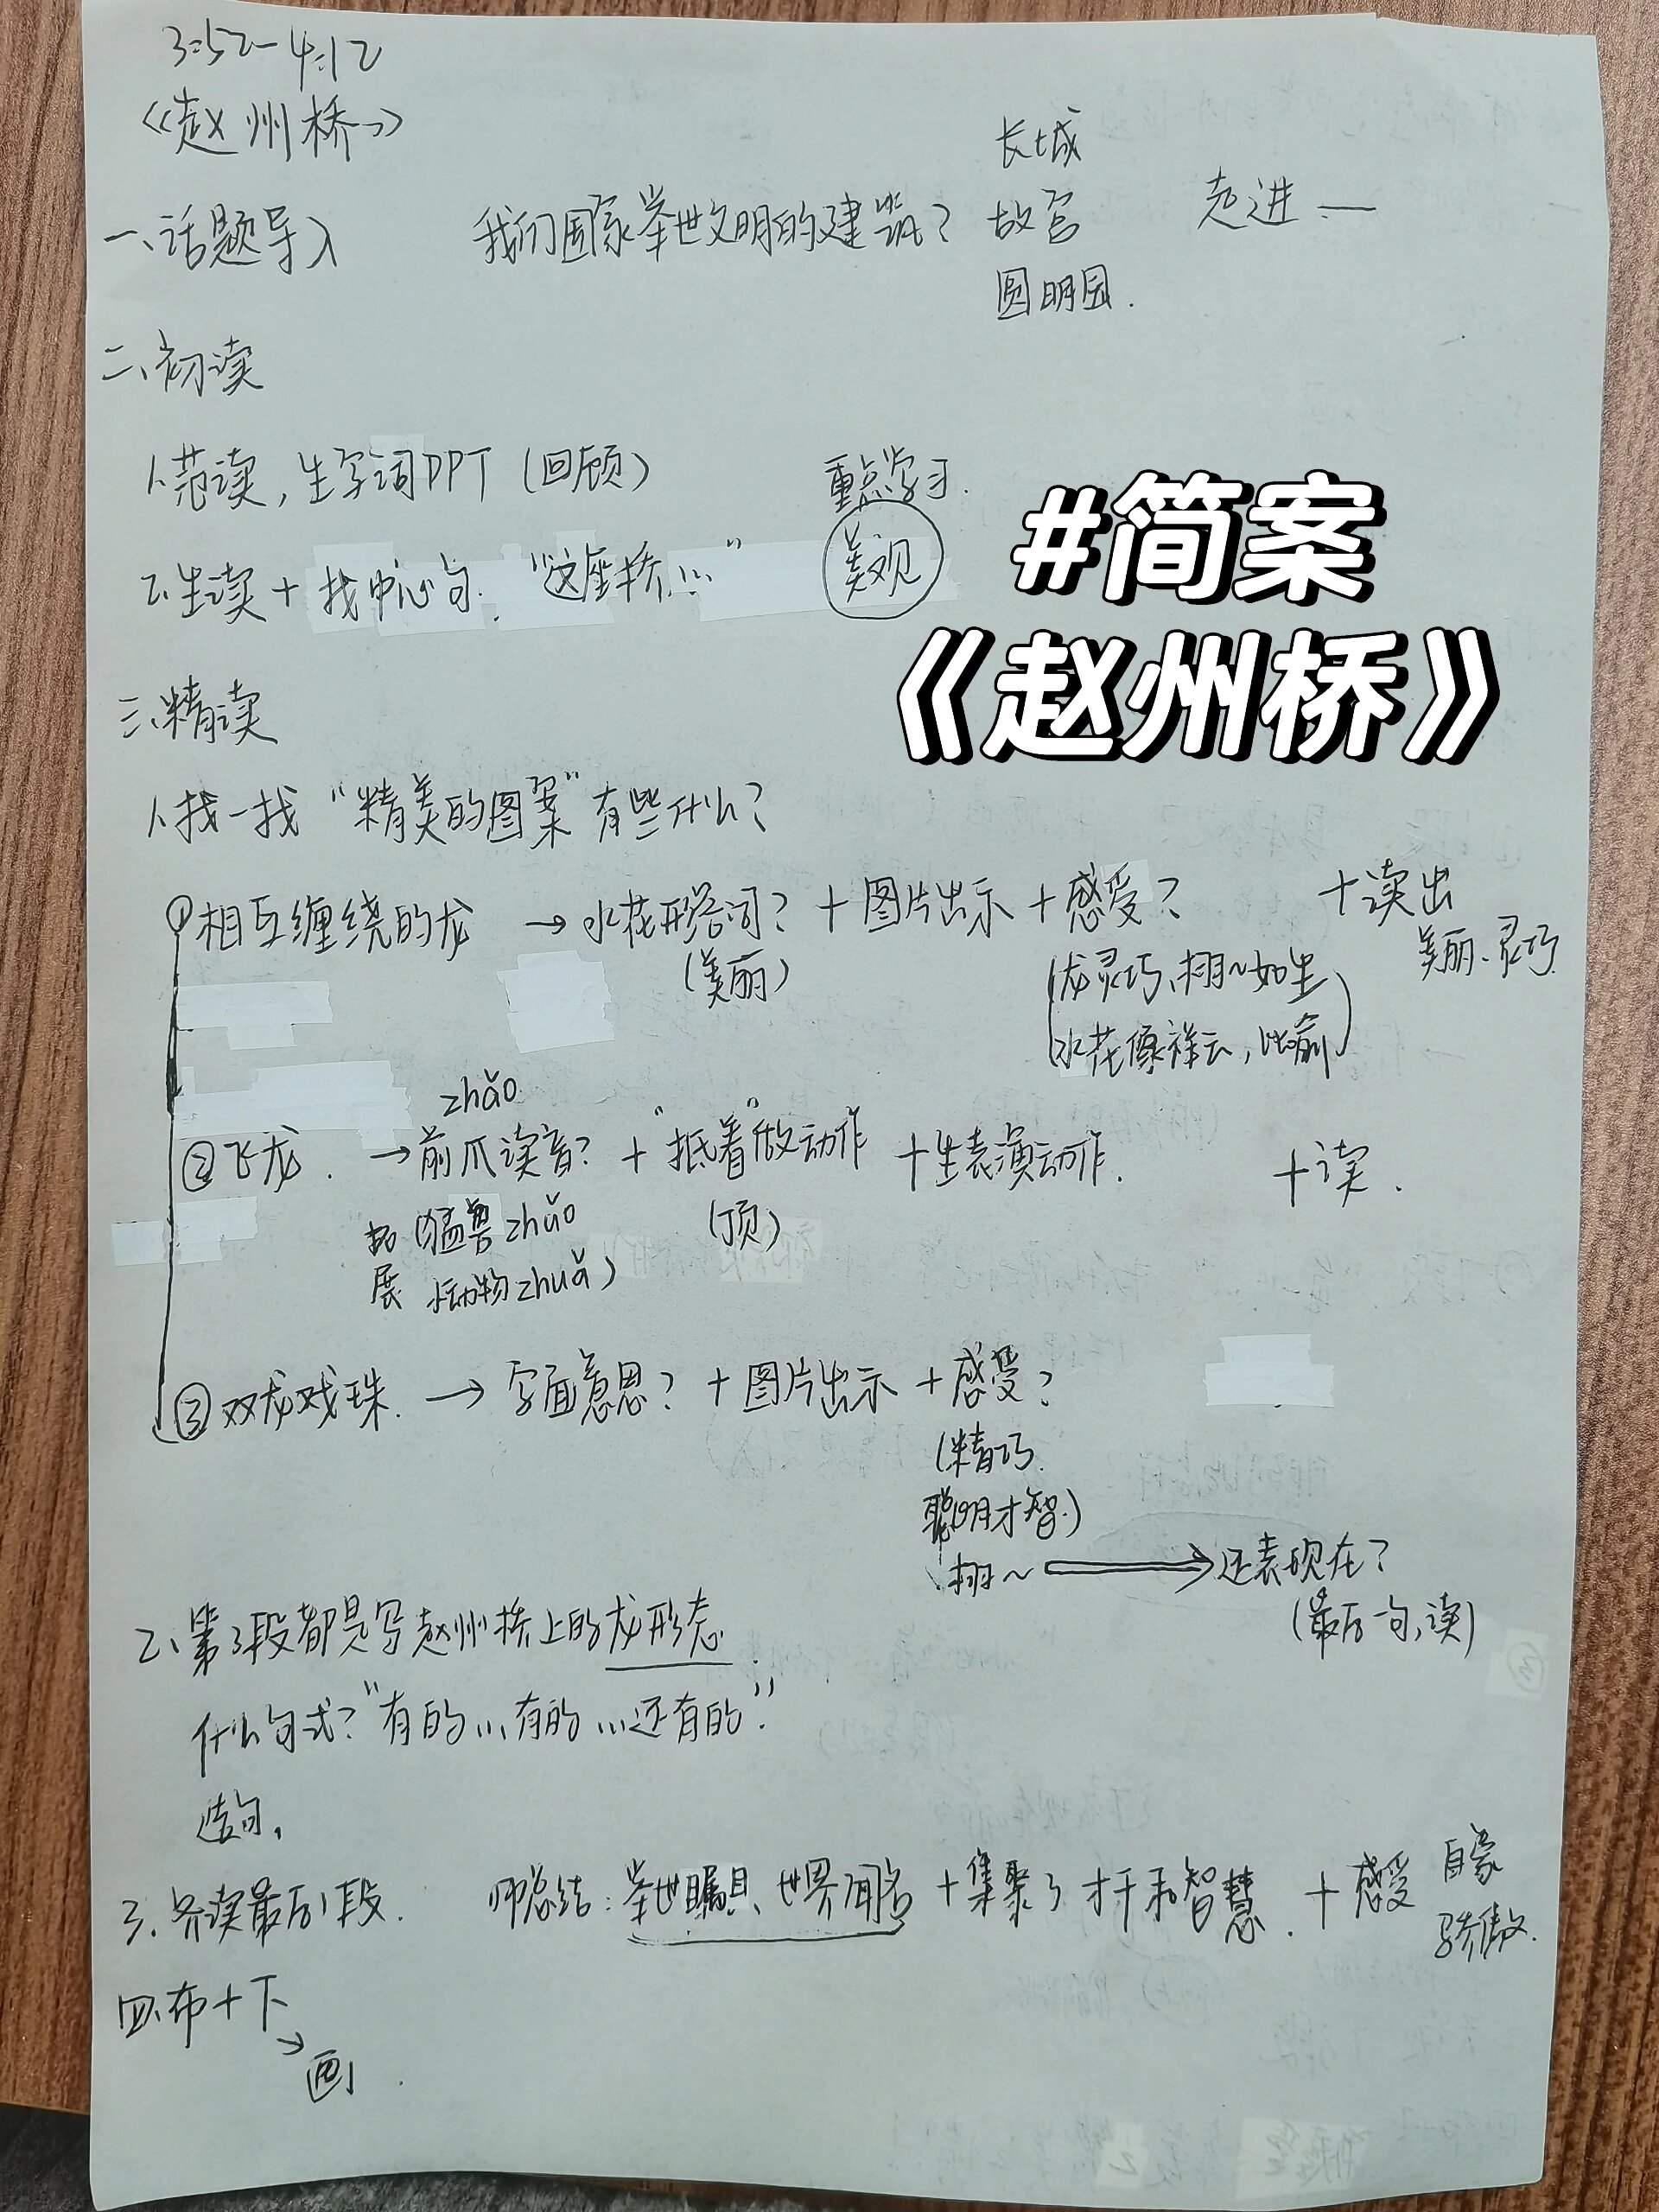 3:52-4:12
《赵州桥》
一、话题导入 我们国家举世文明的建筑? 长城 故宫 圆明园. 走进 —
二、初读
1、范读,生字词PPT(回顾) 重点学习.
2、生读+找中心句.“这座桥...” 美观
#简案
《赵州桥》
三、精读
1、找一找“精美的图案”有些什么?
①相互缠绕的龙 → 水花形容词? + 图片出示 + 感受? + 读出
(美丽) (龙灵巧、栩~如生 美丽、灵巧.
水花像祥云,比喻)
zhǎo
②飞龙. → 前爪读音? + “抵着”做动作 + 生表演动作. + 读.
拓展 (猛兽zhǎo (顶)
小动物zhuǎ)
③双龙戏珠. → 字面意思? + 图片出示 + 感受?
(精巧.
聪明才智.)
栩~ → 还表现在?
(最后一句,读)
2、第3段都是写赵州桥上的龙形态.
什么句式?“有的...有的...还有的”.
造句.
3、齐读最后1段. 师总结:举世瞩目、世界闻名+集聚了才干和智慧.+感受 自豪
骄傲.
四、布+下
→画.